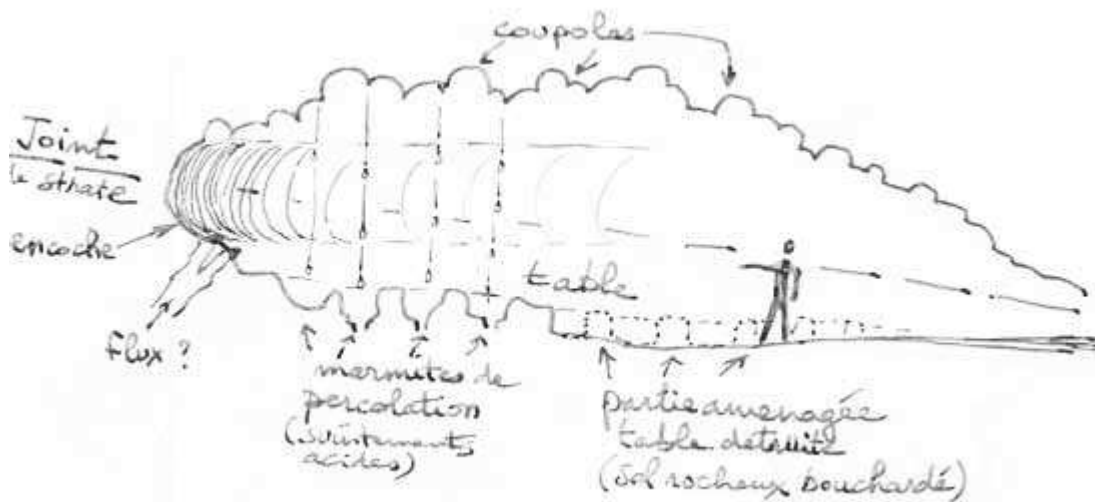 coupoles
Joint
de strate
encoche
Flux ?
table
marmites de
percolation
(suintements
acides)
partie amenagée
table detruite
(sol rocheux bouchardé)